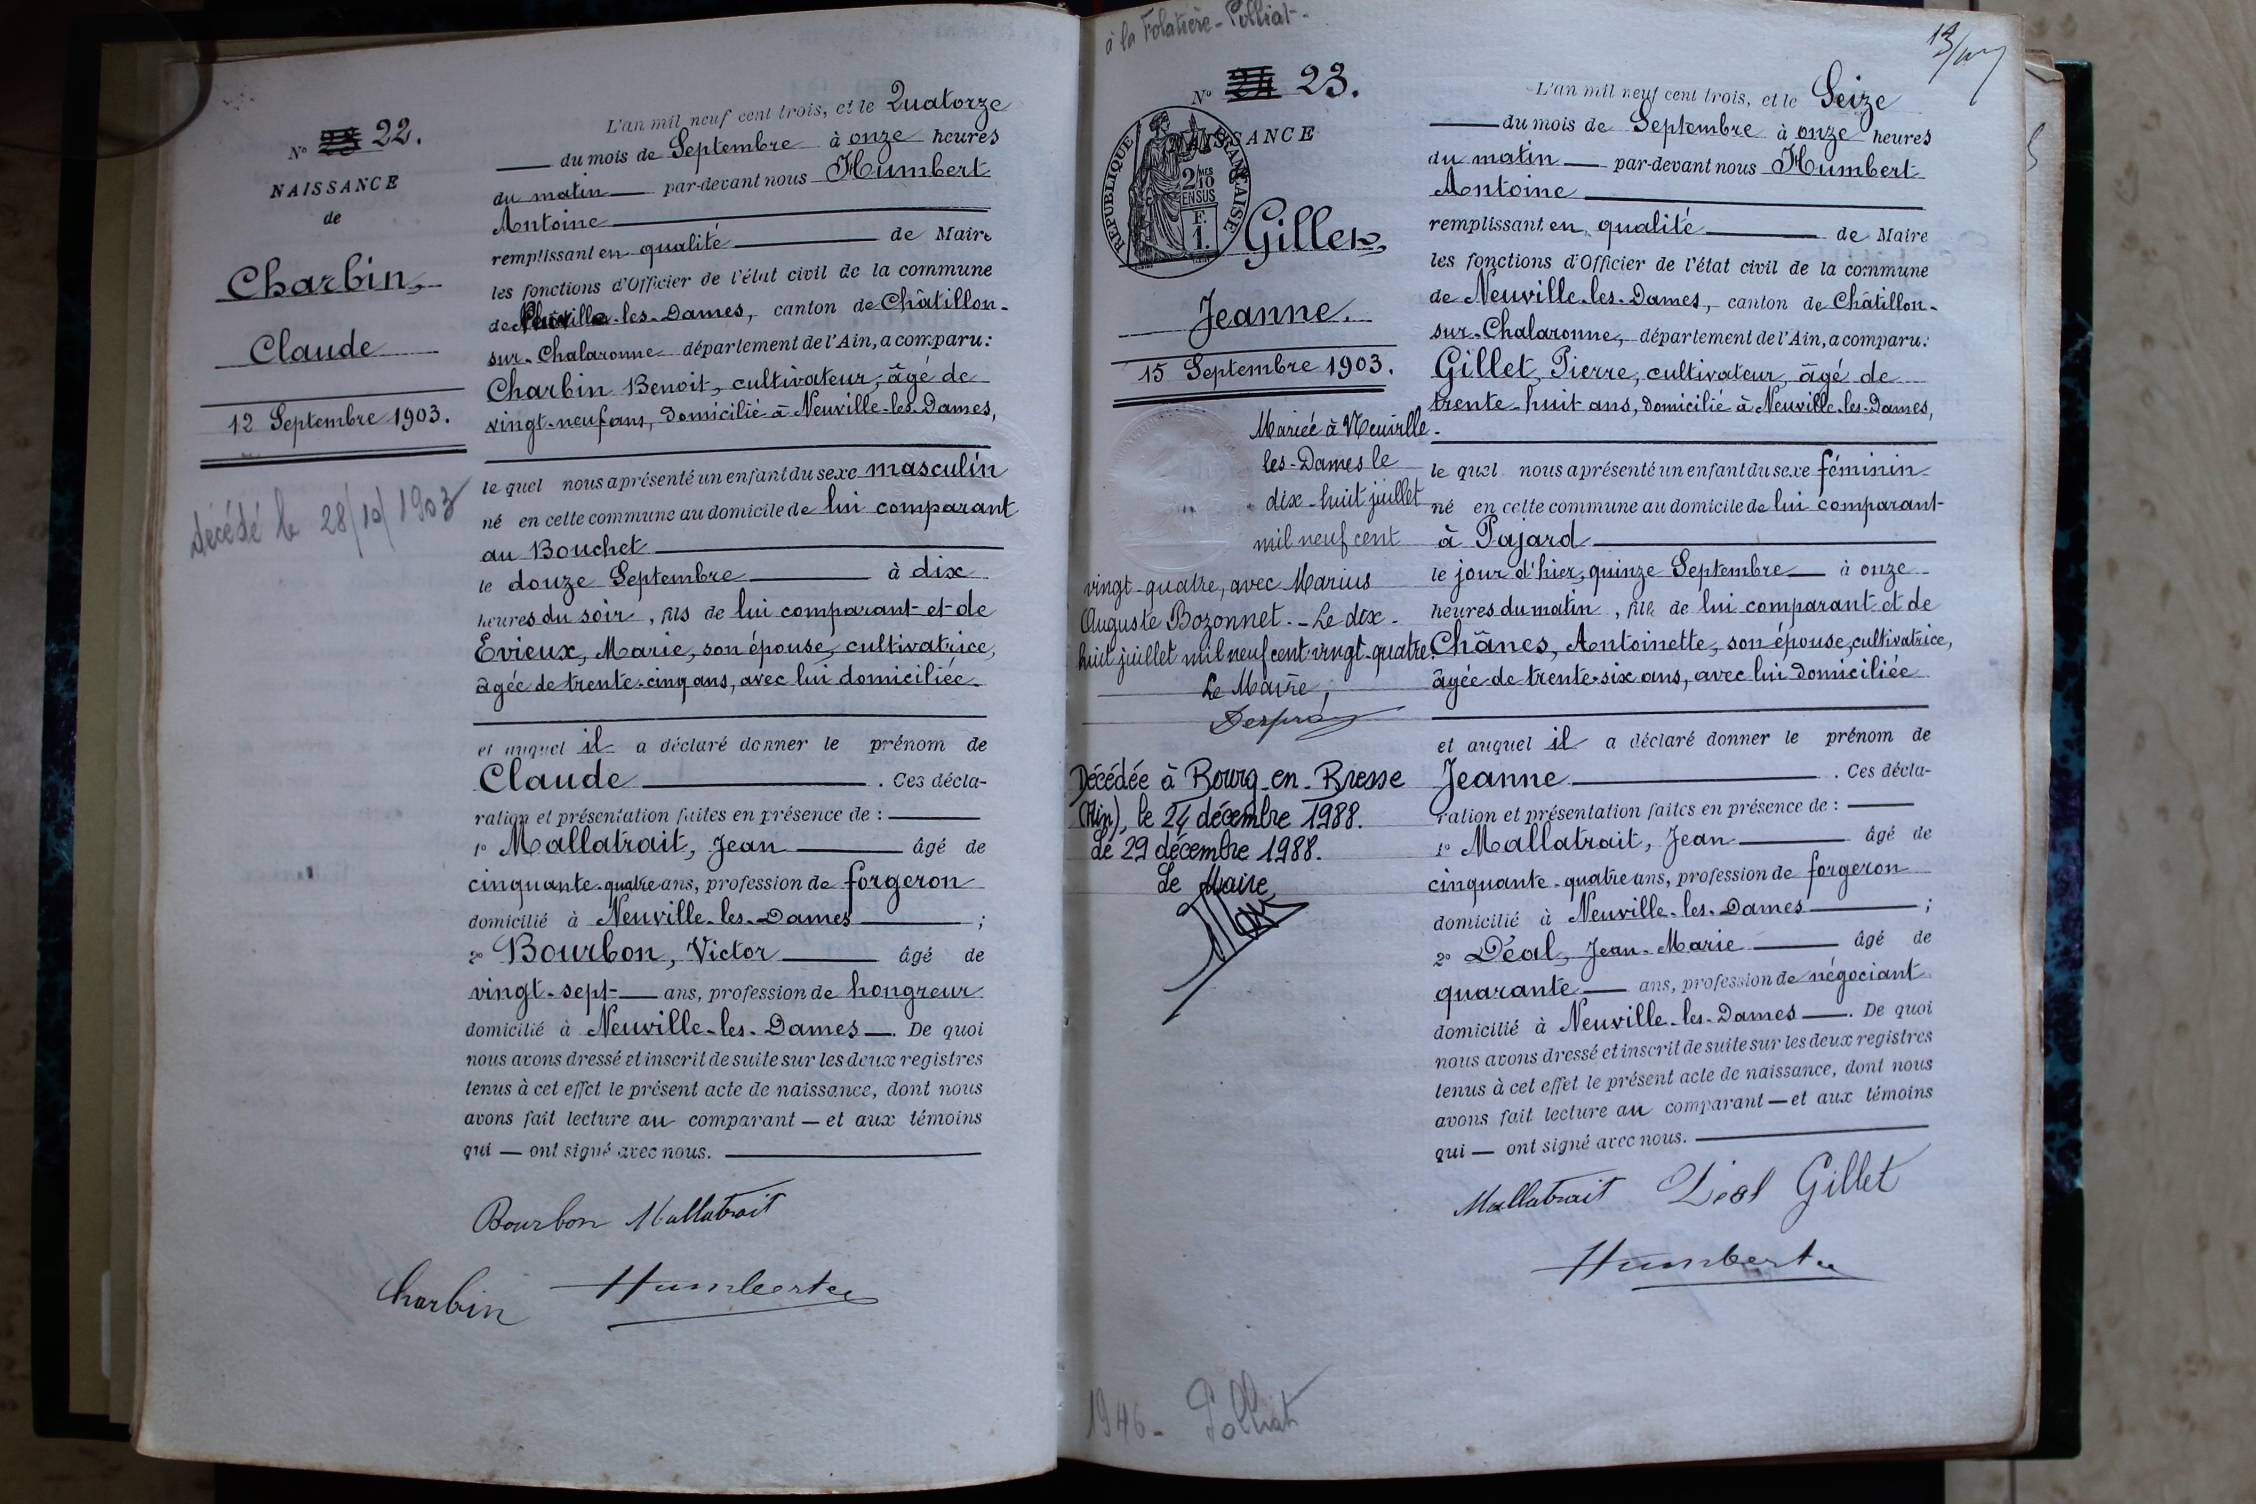 N° 22.
NAISSANCE
de
Charbin,
Claude
12 Septembre 1903.
décédé le 28/10/1903
L'an mil neuf cent trois, et le Quatorze
du mois de Septembre à onze heures
du matin par-devant nous Humbert
Antoine
remplissant en qualité de Maire
les fonctions d'Officier de l'état civil de la commune
de Neuville-les-Dames, canton de Châtillon-
sur-Chalaronne département de l'Ain, a comparu:
Charbin Benoit, cultivateur, âgé de
vingt-neuf ans, domicilié à Neuville-les-Dames,
le quel nous a présenté un enfant du sexe masculin
né en cette commune au domicile de lui comparant
au Bouchet
le douze Septembre à dix
heures du soir, fils de lui comparant et de
Evieux, Marie, son épouse, cultivatrice,
âgée de trente-cinq ans, avec lui domiciliée
et auquel il a déclaré donner le prénom de
Claude. Ces décla-
ration et présentation faites en présence de :
1° Mallatrait, Jean âgé de
cinquante-quatre ans, profession de forgeron
domicilié à Neuville-les-Dames ;
2° Bourbon, Victor âgé de
vingt-sept ans, profession de hongreur
domicilié à Neuville-les-Dames. De quoi
nous avons dressé et inscrit de suite sur les deux registres
tenus à cet effet le présent acte de naissance, dont nous
avons fait lecture au comparant — et aux témoins
qui — ont signé avec nous.
Bourbon Mallatrait
Charbin Humbert
à la Folatière - Polliat -
N° 23.
NAISSANCE
RÉPUBLIQUE FRANÇAISE
2 MES 10
EN SUS
F.
1.
Gillet,
Jeanne.
15 Septembre 1903.
Mariée à Neuville-
les-Dames le
dix-huit juillet
mil neuf cent
vingt-quatre, avec Marius
Auguste Bozonnet. - Le dix-
huit juillet mil neuf cent vingt-quatre.
Le Maire,
Décédée à Bourg-en-Bresse
(Ain), le 24 décembre 1988.
Le 29 décembre 1988.
Le Maire
1946 - Polliat
13
L'an mil neuf cent trois, et le Seize
du mois de Septembre à onze heures
du matin par-devant nous Humbert
Antoine
remplissant en qualité de Maire
les fonctions d'Officier de l'état civil de la commune
de Neuville-les-Dames, canton de Châtillon-
sur-Chalaronne, département de l'Ain, a comparu:
Gillet, Pierre, cultivateur, âgé de
trente-huit ans, domicilié à Neuville-les-Dames,
le quel nous a présenté un enfant du sexe féminin
né en cette commune au domicile de lui comparant
à Pajard
le jour d'hier, quinze Septembre à onze
heures du matin, fille de lui comparant et de
Chânes, Antoinette, son épouse, cultivatrice,
âgée de trente-six ans, avec lui domiciliée
et auquel il a déclaré donner le prénom de
Jeanne. Ces décla-
ration et présentation faites en présence de :
1° Mallatrait, Jean âgé de
cinquante-quatre ans, profession de forgeron
domicilié à Neuville-les-Dames ;
2° Déal, Jean-Marie âgé de
quarante ans, profession de négociant
domicilié à Neuville-les-Dames. De quoi
nous avons dressé et inscrit de suite sur les deux registres
tenus à cet effet le présent acte de naissance, dont nous
avons fait lecture au comparant — et aux témoins
qui — ont signé avec nous.
Mallatrait Déal Gillet
Humbert